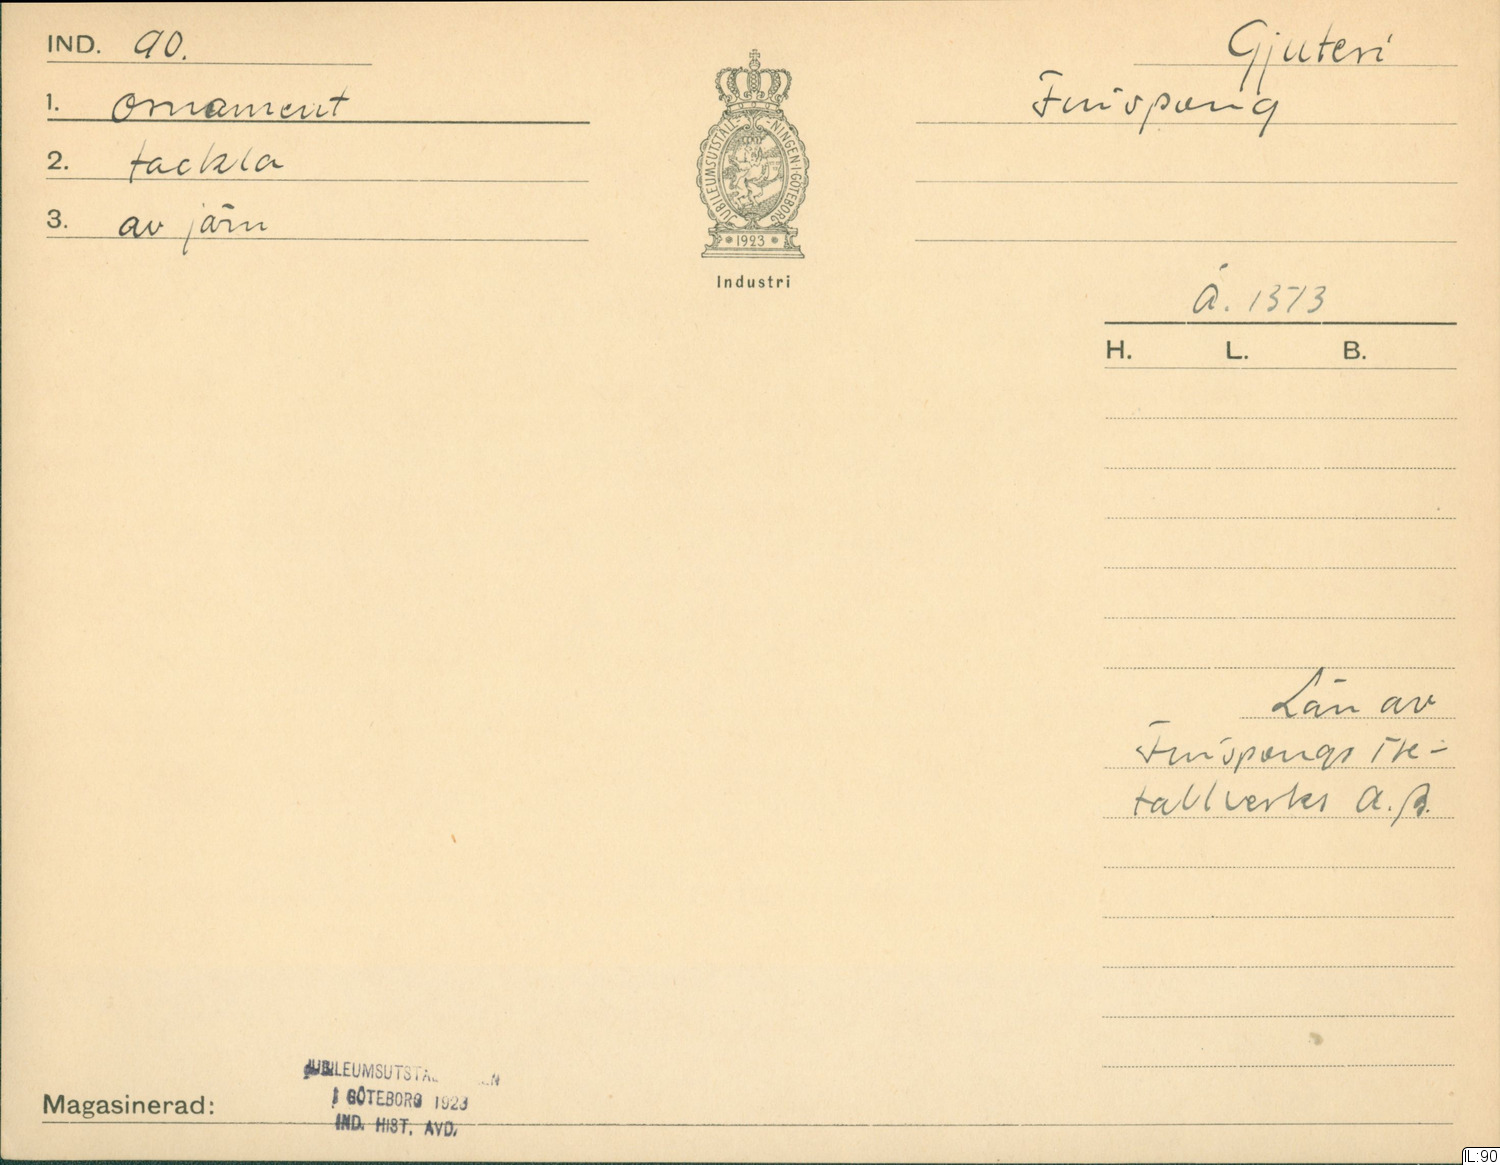 IND. 90.
1. ornament
2. tackla
3. av järn
JUBILEUMSUTSTÄLL-NINGEN I GÖTEBORG
1923
Industri
Gjuteri
Finspong
Å. 1513
H. L. B.
Lån av
Finspongs Me-
tallverks A.B.
Magasinerad:
JUBILEUMSUTSTÄ
I GÖTEBORG 1923
IND. HIST. AVD.
IL:90